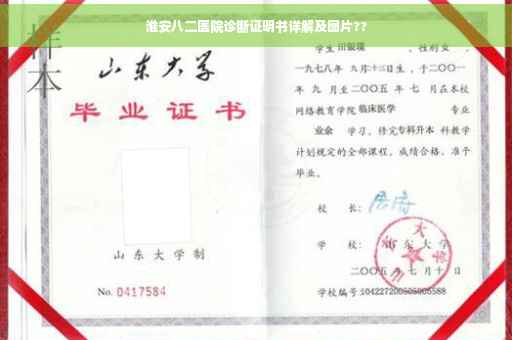 淮安八二医院诊断证明书详解及图片??
样
本
山东大学
毕业证书
山东大学制
No. 0417584
学生 田银瑛 ，性别女，
一九七八年 九月十二日生，于二〇〇一
年 九 月至二〇〇五 年 七 月在本校
网络教育学院 临床医学 专业
业余 学习，修完专科升本 科教学
计划规定的全部课程，成绩合格，准予
毕业。
校 长：
学 校： 山东大学
二〇〇五 年 七 月 十 日
学校编号:104227200505005588